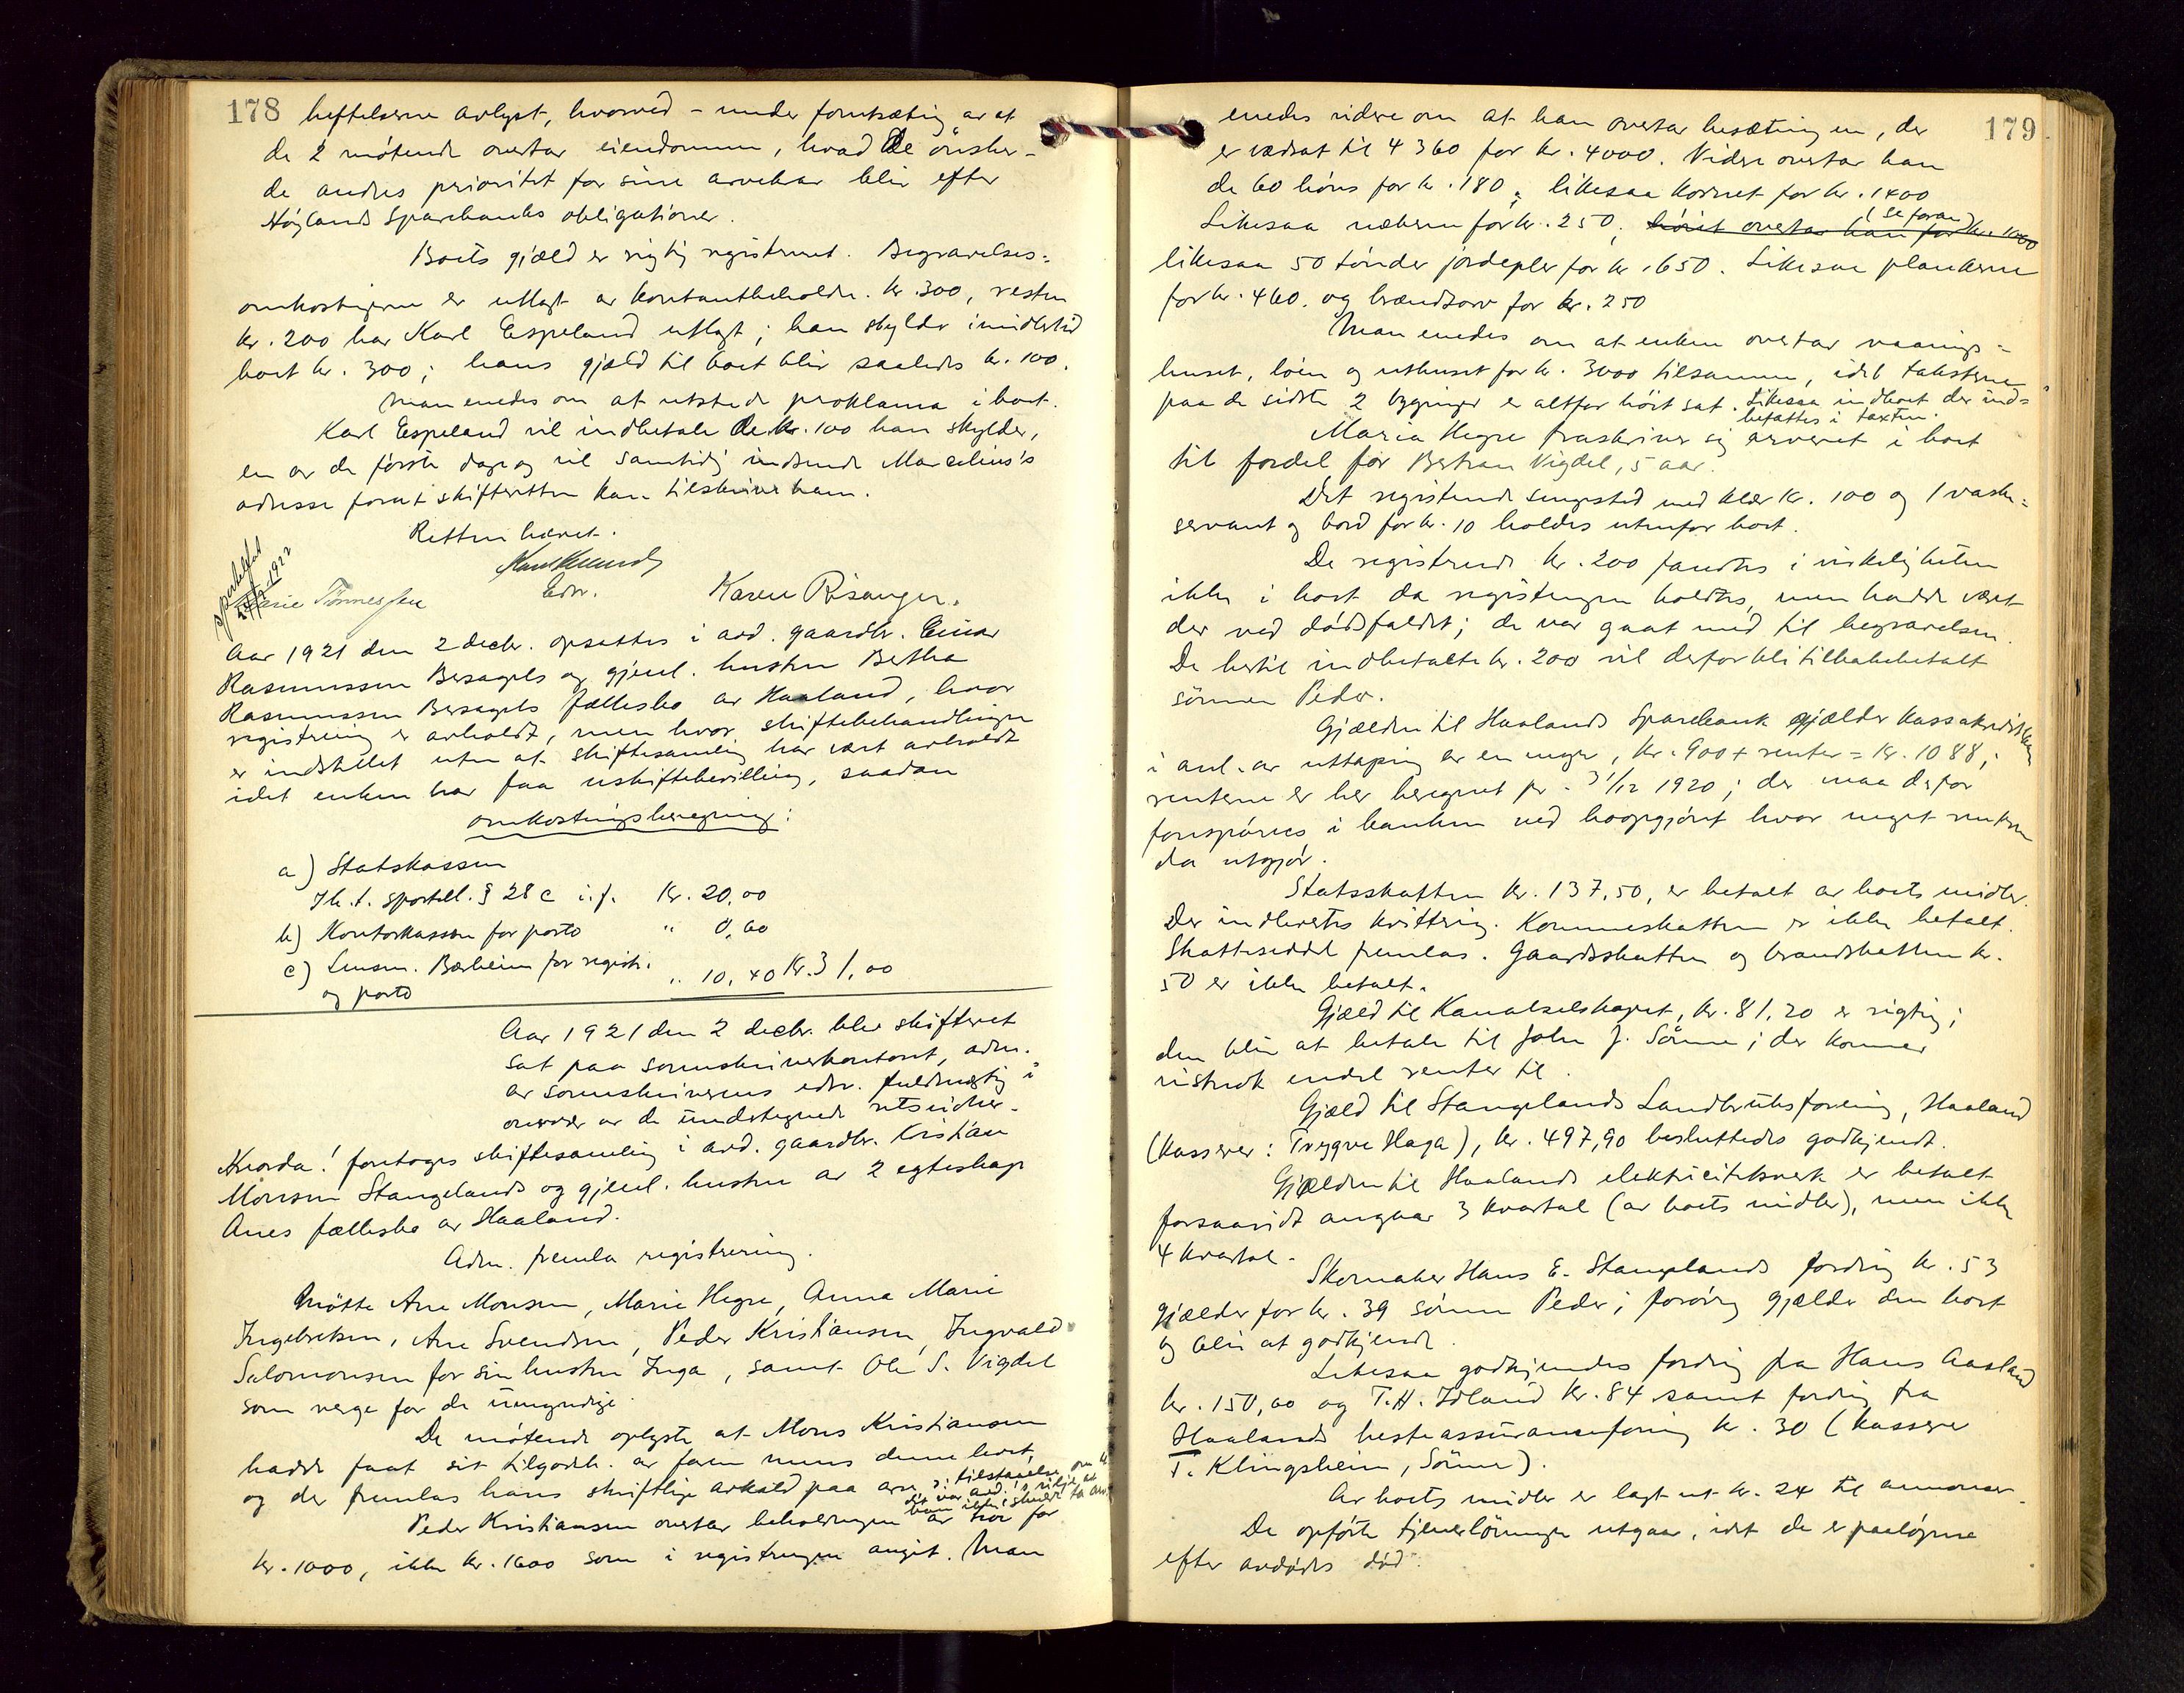 178
heftelserne avlyst, hvorved - under forutsætning av at
de 2 møtende overtar eiendommen, hvad de ønsker -
de andres prioritet for sine arvekrav blir efter
Høylands Sparebanks obligationer.
Boets gjæld er rigtig registreret. Begravelses-
omkostningerne er utlagt av kontantbeholdn. kr. 300, resten
kr. 200 har Karl Espeland utlagt; han skylder imidlertid
boet kr. 300; hans gjæld til boet blir saaledes kr. 100.
Man enedes om at utstede proklama i boet.
Karl Espeland vil indbetale de kr. 100 han skylder,
en av de første dage og vil samtidig indsende Marselius's
adresse forat skifteretten kan tilskrive ham.
Retten hævet.
Edsv.
Karen Risanger.
Marie Tønnessen
1922
Aar 1921 den 2 decbr. opsattes i avd. gaardbr. Einar
Rasmussen Bersagels og gjenl. hustru Bertha
Rasmussen Bersagels fællesbo av Haaland, hvor
registrering er avholdt, men hvor skiftebehandlingen
er indstillet uten at skiftesamling har vært avholdt
idet enken har faa uskiftebevilling, saadan
omkostningsberegning:
a) Statskassen
Ih. t. sportell. § 28 c i. f. Kr. 20,00
b) Kontorkassen for porto " 0,60
c) Lensm. Bærheim for registr.
og porto " 10,40 Kr. 31,00
Aar 1921 den 2 decbr. blev skifteret
sat paa sorenskriverkontoret, adm.
av sorenskriverens edsv. fuldmægtig i
overvær av de undertegnede retsvidner.
Hvorda! foretoges skiftesamling i avd. gaardbr. Kristian
Monsen Stangelands og gjenl. hustru av 2 egteskap
Anes fællesbo av Haaland.
Adm. fremla registrering.
Møtte Ane Monsen, Marie Hegre, Anna Marie
Ingebretsen, Ane Svendsen, Peder Kristiansen, Ingvald
Salomonsen for sin hustru Inga, samt Ole S. Vigdel
som verge for de umyndige
De møtende oplyste at Mons Kristiansen
hadde faat sit tilgodeh. av faren mens denne levet,
og der fremlas hans skriftlige avkald paa arv
Peder Kristiansen overtar beholdningen av høi for
kr. 1000, ikke kr. 1600 som i registreringen angit. Man
179
enedes videre om at han overtar besætningen, der
er vædsat til 4360 for kr. 4000. Videre overtar han
de 60 høns for kr. 180, likesaa kornet for kr. 1400
Likesaa næperne for kr. 250, høiet overtar han for kr. 1000
(se foran)
likesaa 50 tønder jordepler for kr. 650. Likesaa plankerne
for kr. 460. og brændtorv for kr. 250
Man enedes om at enken overtar vaanings-
huset, løen og uthuset for kr. 3000 tilsammen, idet taksterne
paa de sidste 2 bygninger er altfor høit sat. Likesaa indboet der ind-
befattes i taxten.
Maria Hegre fraskriver sig arveret i boet
til fordel for Bertran Vigdel, 5 aar.
Det registrerede sengested med klær kr. 100 og 1 vaske-
servant og bord for kr. 10 holdes utenfor boet.
De registrerede kr. 200 fandtes i virkeligheten
ikke i boet da registreringen holdtes, men hadde været
der ved dødsfaldet; de var gaat med til begravelsen.
De hertil indbetalte kr. 200 vil derfor bli tilbakebetalt
sønnen Peder.
Gjælden til Haalands Sparebank gjælder kassakreditten
i anl. av uttapning av en myr, kr. 900 + renter = kr. 1088,
renterne er her beregnet pr. 31/12 1920; der maa derfor
forespørres i banken ved boopgjøret hvor meget renterne
da utgjør.
Statsskatten kr. 137,50, er betalt av boets midler.
Der indleveretes kvittering. Kommuneskatten er ikke betalt.
Skatteseddel fremlas. Gaardsskatten og brandskatten kr.
50 er ikke betalt.
Gjæld til Kanalselskapet, kr. 81,20 er rigtig;
den blir at betale til John J. Sømme; der kommer
vistnok endel renter til.
Gjæld til Stangelands Landbruksforening, Haaland
(kasserer: Trygve Haga), kr. 497,90 besluttedes godkjendt.
Gjælden til Haalands elektricitetsverk er betalt
forsaavidt angaar 3 kvartal (av boets midler), men ikke
4 kvartal.
Skomaker Hans E. Stangelands fordring kr. 53
gjælder for kr. 39 sønnen Peder; forøvrig gjælder den boet
og blir at godkjende.
Likesaa godkjendes fordring fra Hans Aasland
kr. 150,00 og T. H. Idland kr. 84 samt fordring fra
Haalands hesteassuranseforening kr. 30 (kasserer
T. Klingsheim, Sømme).
Av boets midler er lagt ut kr. 24 til annoncer.
De opførte tjenerlønninger utgaar, idet de er paaløpne
efter avdødes død.